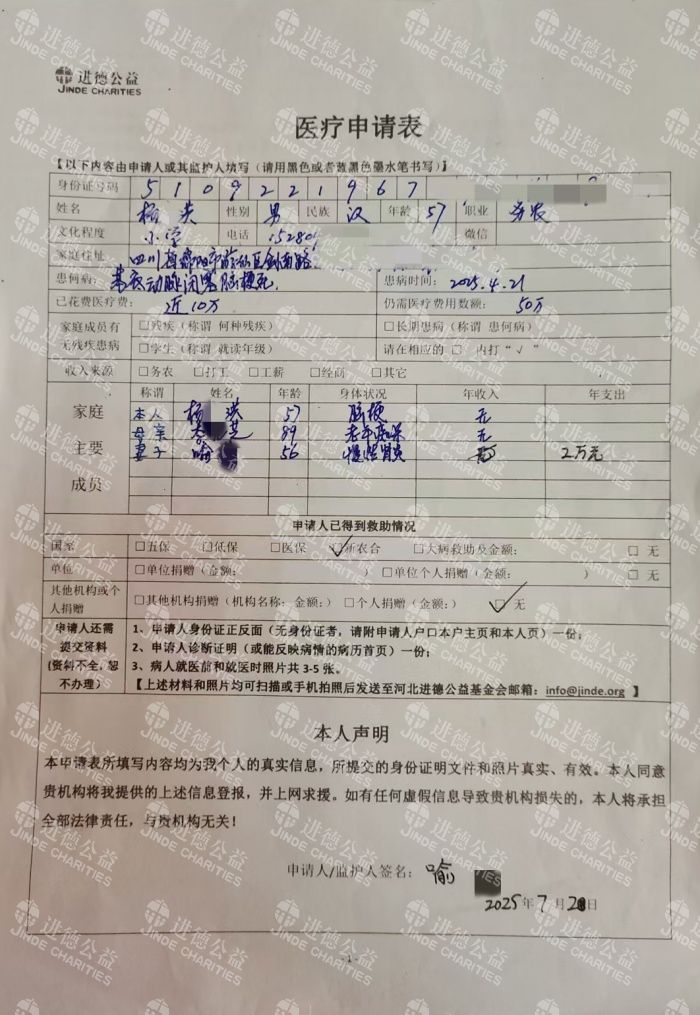 进德公益
JINDE CHARITIES
医疗申请表
【以下内容由申请人或其监护人填写（请用黑色或者蓝黑色墨水笔书写）】
身份证号码 5 1 0 9 2 2 1 9 6 7
姓名 杨 性别 男 民族 汉 年龄 57 职业 务农
文化程度 小学 电话 15280 微信
家庭住址 四川省绵阳市
患何病： 基底动脉闭塞 脑梗死 患病时间： 2025.4.21
已花费医疗费： 近10万 仍需医疗费用数额： 50万
家庭成员有 □残疾（称谓 何种残疾） □长期患病（称谓 患何病）
无残疾患病 □学生（称谓 就读年级） 请在相应的 □ 内打“√”
收入来源 □务农 □打工 □工薪 □经商 □其它
称谓 姓名 年龄 身体状况 年收入 年支出
家庭 本人 杨 57 脑梗 无
母亲 芝 89 老年痴呆 无
主要 妻子 喻 56 慢性胃炎 2万元
成员
申请人已得到救助情况
国家 □五保 □低保 □医保 □新农合 □大病救助及金额： □ 无
单位 □单位捐赠（金额： ） □单位个人捐赠（金额： ） □ 无
其他机构或个人捐赠 □其他机构捐赠（机构名称：金额：） □个人捐赠（金额：） □ 无
申请人还需 1、申请人身份证正反面（无身份证者，请附申请人户口本户主页和本人页）一份；
提交资料 2、申请人诊断证明（或能反映病情的病历首页）一份；
(资料不全，恕 3、病人就医前和就医时照片共 3-5 张。
不办理） 【上述材料和照片均可扫描或手机拍照后发送至河北进德公益基金会邮箱：info@jinde.org 】
本人声明
本申请表所填写内容均为我个人的真实信息，所提交的身份证明文件和照片真实、有效。本人同意
贵机构将我提供的上述信息登报，并上网求援。如有任何虚假信息导致贵机构损失的，本人将承担
全部法律责任，与贵机构无关！
申请人/监护人签名： 喻
2025年7月20日
- 1 -